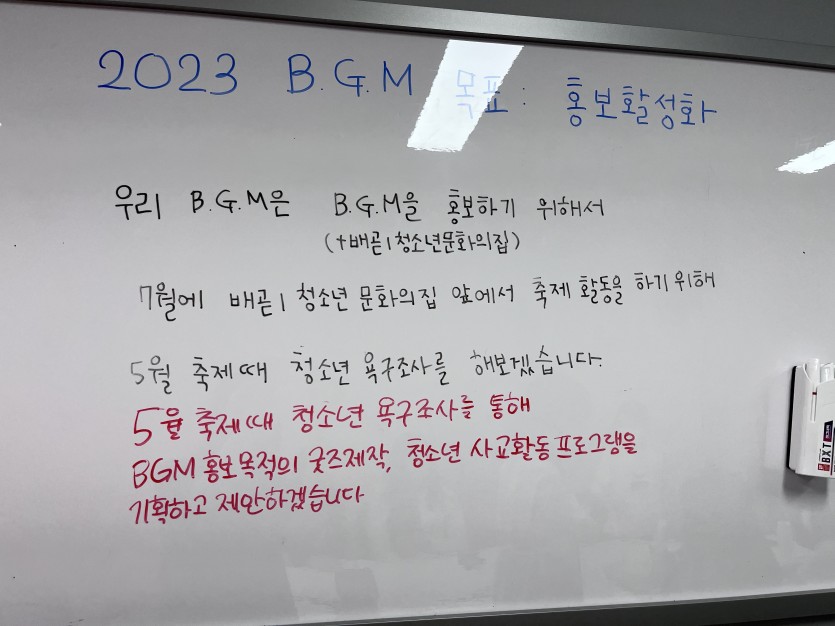 2023 B.G.M 목표: 홍보활성화
우리 B.G.M은 B.G.M을 홍보하기 위해서
(+배곧1청소년문화의집)
7월에 배곧1 청소년 문화의집 앞에서 축제 활동을 하기위해
5월 축제때 청소년 욕구조사를 해보겠습니다.
5월 축제때 청소년 욕구조사를 통해
BGM 홍보목적의 굿즈제작, 청소년 사교활동프로그램을
기획하고 제안하겠습니다
BXT